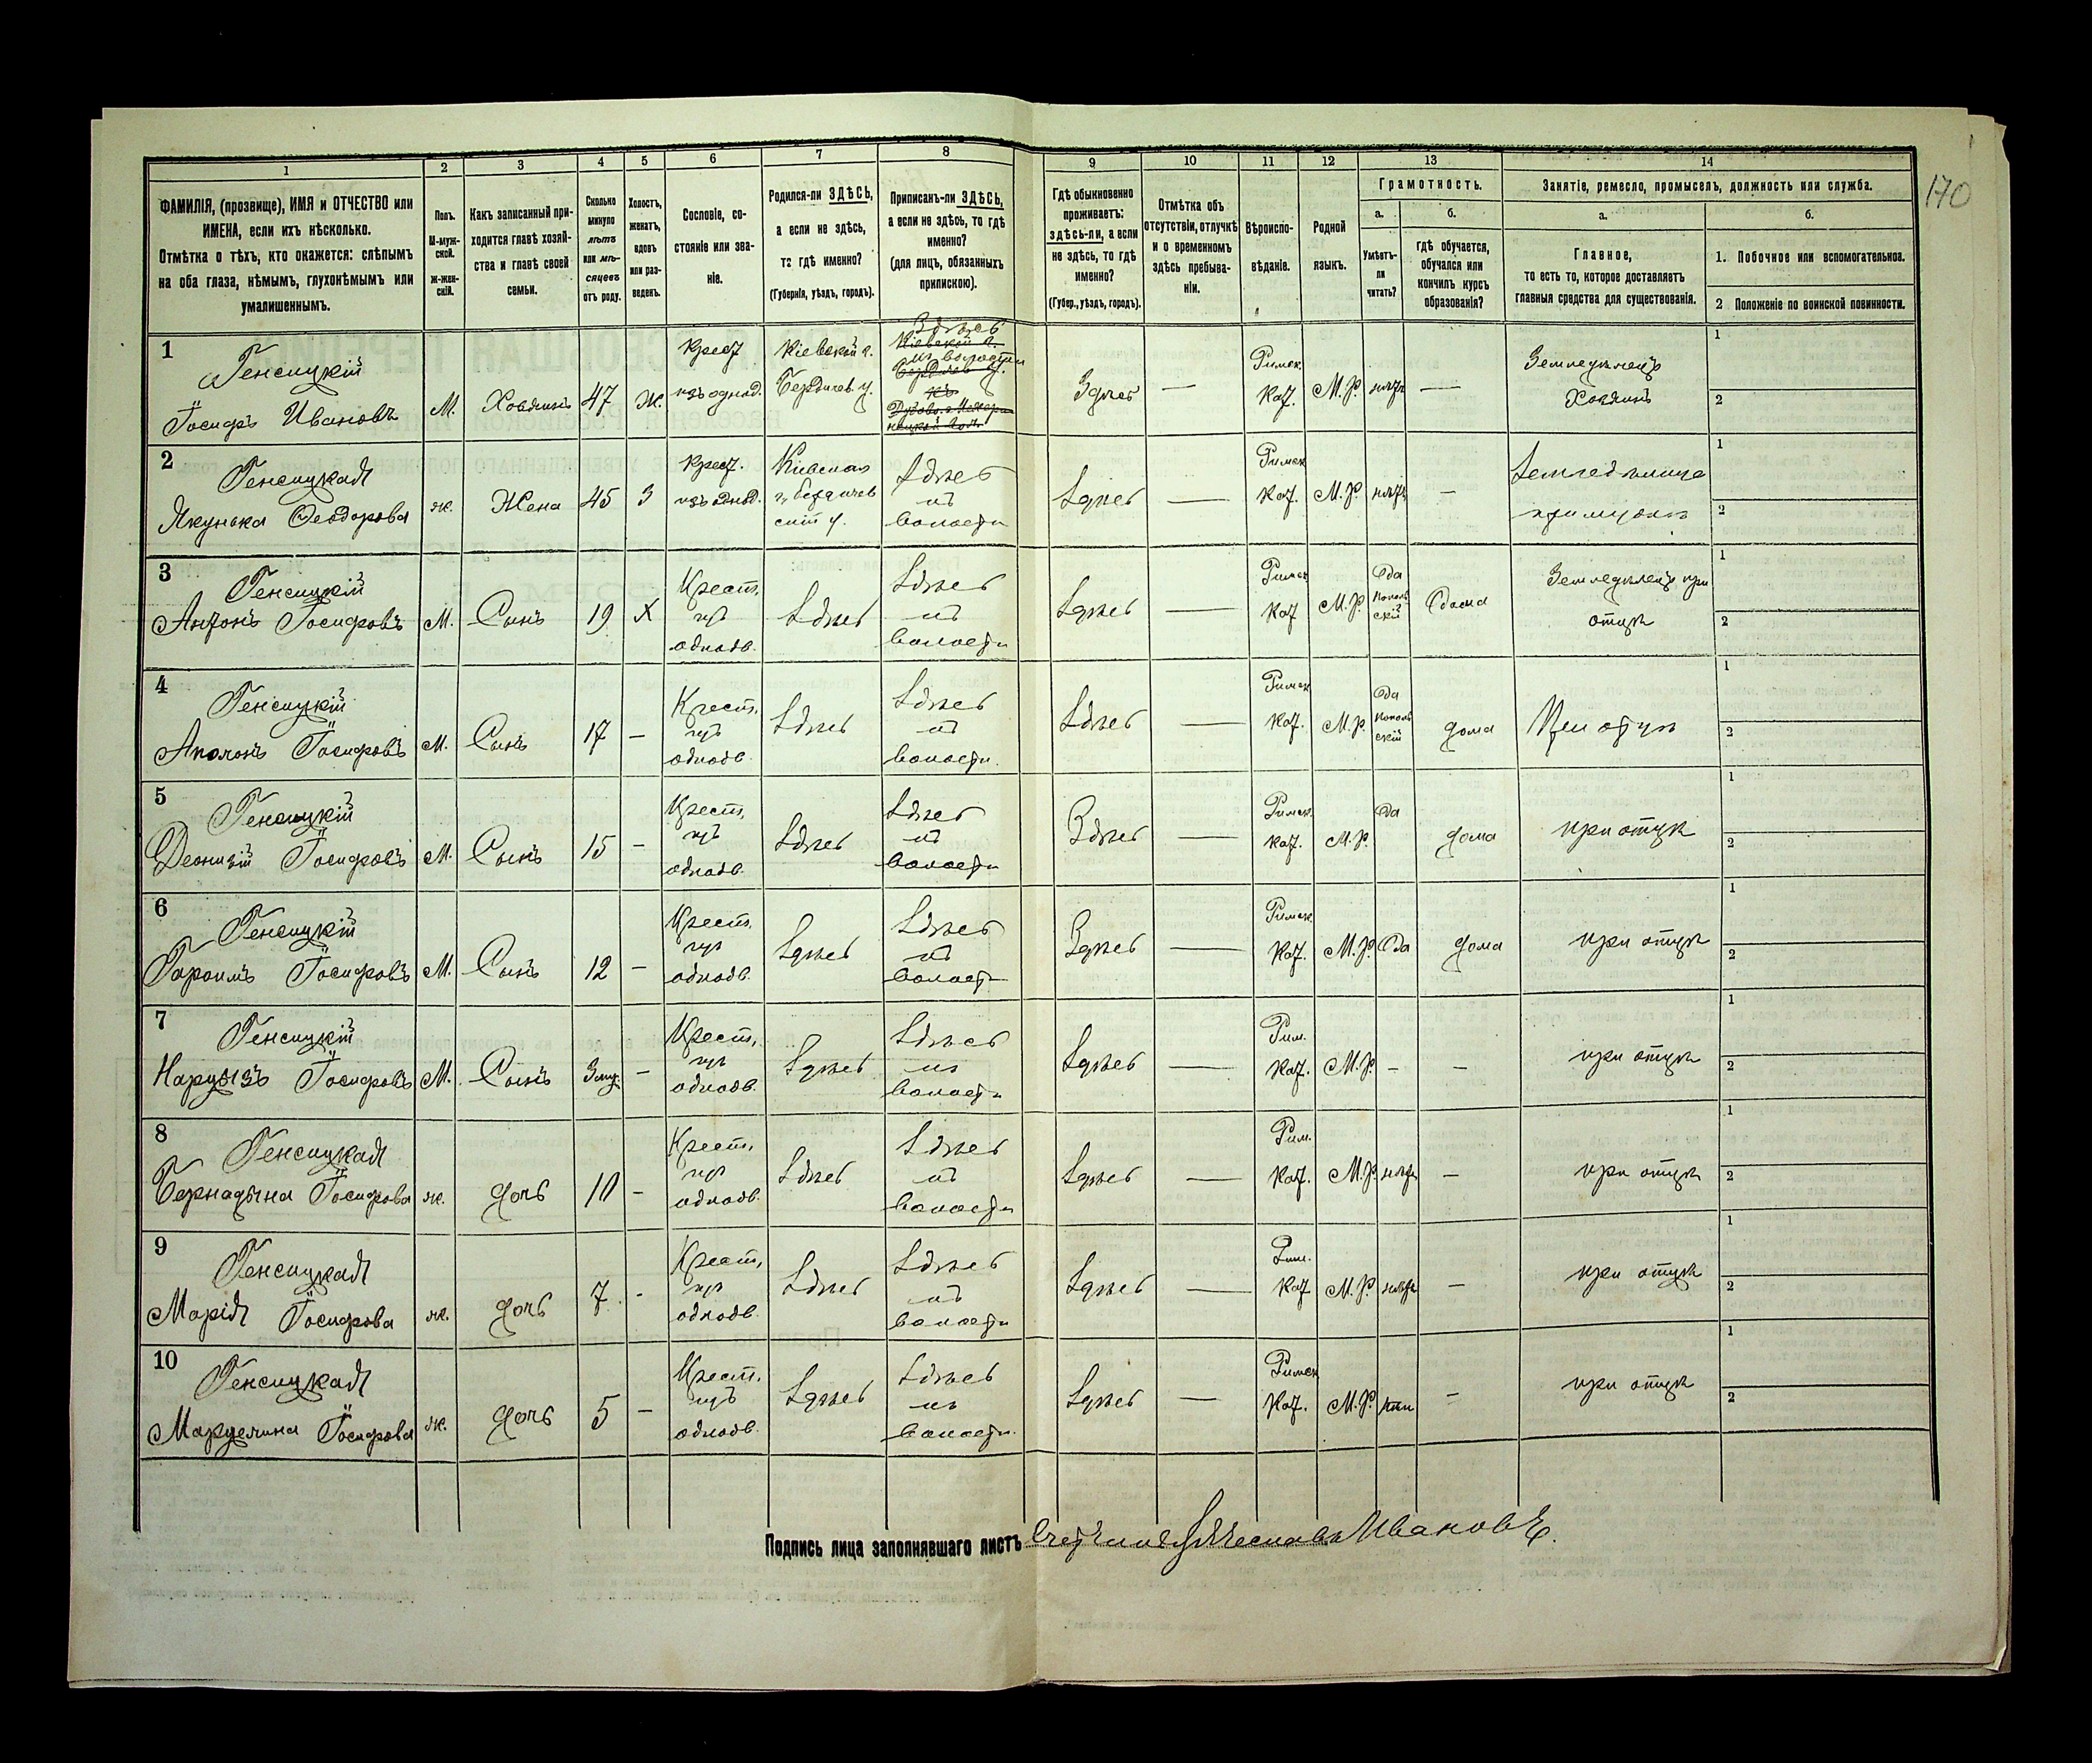 170
1 2 3 4 5 6 7 8 9 10 11 12 13 14
ФАМИЛІЯ, (прозвище), ИМЯ и ОТЧЕСТВО или
ИМЕНА, если ихъ нѣсколько.
Отмѣтка о тѣхъ, кто окажется: слѣпымъ
на оба глаза, нѣмымъ, глухонѣмымъ или
умалишеннымъ.
Полъ.
М-муж-
ской.
Ж-жен-
скій.
Какъ записанный при-
ходится главѣ хозяй-
ства и главѣ своей
семьи.
Сколько
минуло
лѣтъ
или мѣ-
сяцевъ
отъ роду.
Холостъ,
женатъ,
вдовъ
или раз-
веденъ.
Сословіе, со-
стояніе или зва-
ніе.
Родился-ли ЗДѢСЬ,
а если не здѣсь,
то гдѣ именно?
(Губернія, уѣздъ, городъ).
Приписанъ-ли ЗДѢСЬ,
а если не здѣсь, то гдѣ
именно?
(для лицъ, обязанныхъ
припискою).
Гдѣ обыкновенно
проживаетъ:
здѣсь-ли, а если
не здѣсь, то гдѣ
именно?
(Губер., уѣздъ, городъ).
Отмѣтка объ
отсутствіи, отлучкѣ
и о временномъ
здѣсь пребыва-
ніи.
Вѣроиспо-
вѣданіе.
Родной
языкъ.
Грамотность.
а.
Умѣетъ-
ли
читать?
б.
гдѣ обучается,
обучался или
кончилъ курсъ
образованія?
Занятіе, ремесло, промыселъ, должность или служба.
а.
Главное,
то есть то, которое доставляетъ
главныя средства для существованія.
б.
1. Побочное или вспомогательное.
2 Положеніе по воинской повинности.
1
Генсицкій
Іосифъ Ивановъ
М.
Хозяинъ
47
Ж.
Крест
изъ однод.
Кіевскій г.
Бердичев. у.
Здѣсь
въ волости
Здѣсь
—
Римск.
Каѳ.
М.Р.
нѣтъ
—
Земледѣлецъ
Хозяинъ
1
2
2
Генсицкая
Якунька Ѳеодорова
ж.
Жена
45
З
Крест.
изъ однод.
Кіевская
г. Бердичев
скій у.
Здѣсь
въ
волости
Здѣсь
—
Римск
Каѳ.
М.Р.
нѣтъ
—
1
2
3
Генсицкій
Антонъ Іосифовъ
М.
Сынъ
19
Х
Крест.
изъ
однодв.
Здѣсь
Здѣсь
въ
волости
Здѣсь
—
Римск
Каѳ
М.Р.
Да
Дома
Земледѣлецъ при
отцѣ
1
2
4
Генсицкій
Аполонъ Іосифовъ
М.
Сынъ
17
—
Крест.
изъ
однодв.
Здѣсь
Здѣсь
въ
волости.
Здѣсь
—
Римск
Каѳ.
М.Р.
Да
дома
При отцѣ
1
2
5
Генсицкій
Деонизій Іосифовъ
М.
Сынъ
15
—
Крест.
изъ
однодв.
Здѣсь
Здѣсь
въ
волости
Здѣсь
—
Римск.
Каѳ.
М.Р.
Да
дома
при отцѣ
1
2
6
Генсицкій
Іосифовъ
М.
Сынъ
12
—
Крест.
изъ
однодв.
Здѣсь
Здѣсь
въ
волости
Здѣсь
—
Римск.
Каѳ.
М.Р.
Да
дома
при отцѣ
1
2
7
Генсицкій
Нарцызъ Іосифовъ
М.
Сынъ
—
Крест.
изъ
однодв.
Здѣсь
Здѣсь
въ
волости
Здѣсь
—
Рим.
Каѳ.
М.Р
—
—
при отцѣ
1
2
8
Генсицкая
Бернадына Іосифова
ж.
дочь
10
—
Крест.
изъ
однодв.
Здѣсь
Здѣсь
въ
волости
Здѣсь
—
Рим.
Каѳ.
М.Р.
нѣтъ
—
при отцѣ
1
2
9
Генсицкая
Марія Іосифова
ж.
дочь
7
-
Крест.
изъ
однодв.
Здѣсь
Здѣсь
въ
волости
Здѣсь
—
Рим.
Каѳ
М.Р.
нѣтъ
—
при отцѣ
1
2
10
Генсицкая
Марцелина Іосифова
ж.
дочь
5
—
Крест.
изъ
однодв.
Здѣсь
Здѣсь
въ
волости.
Здѣсь
—
Римск
Каѳ.
М.Р.
—
при отцѣ
1
2
Подпись лица заполнявшаго листъ Ивановъ.